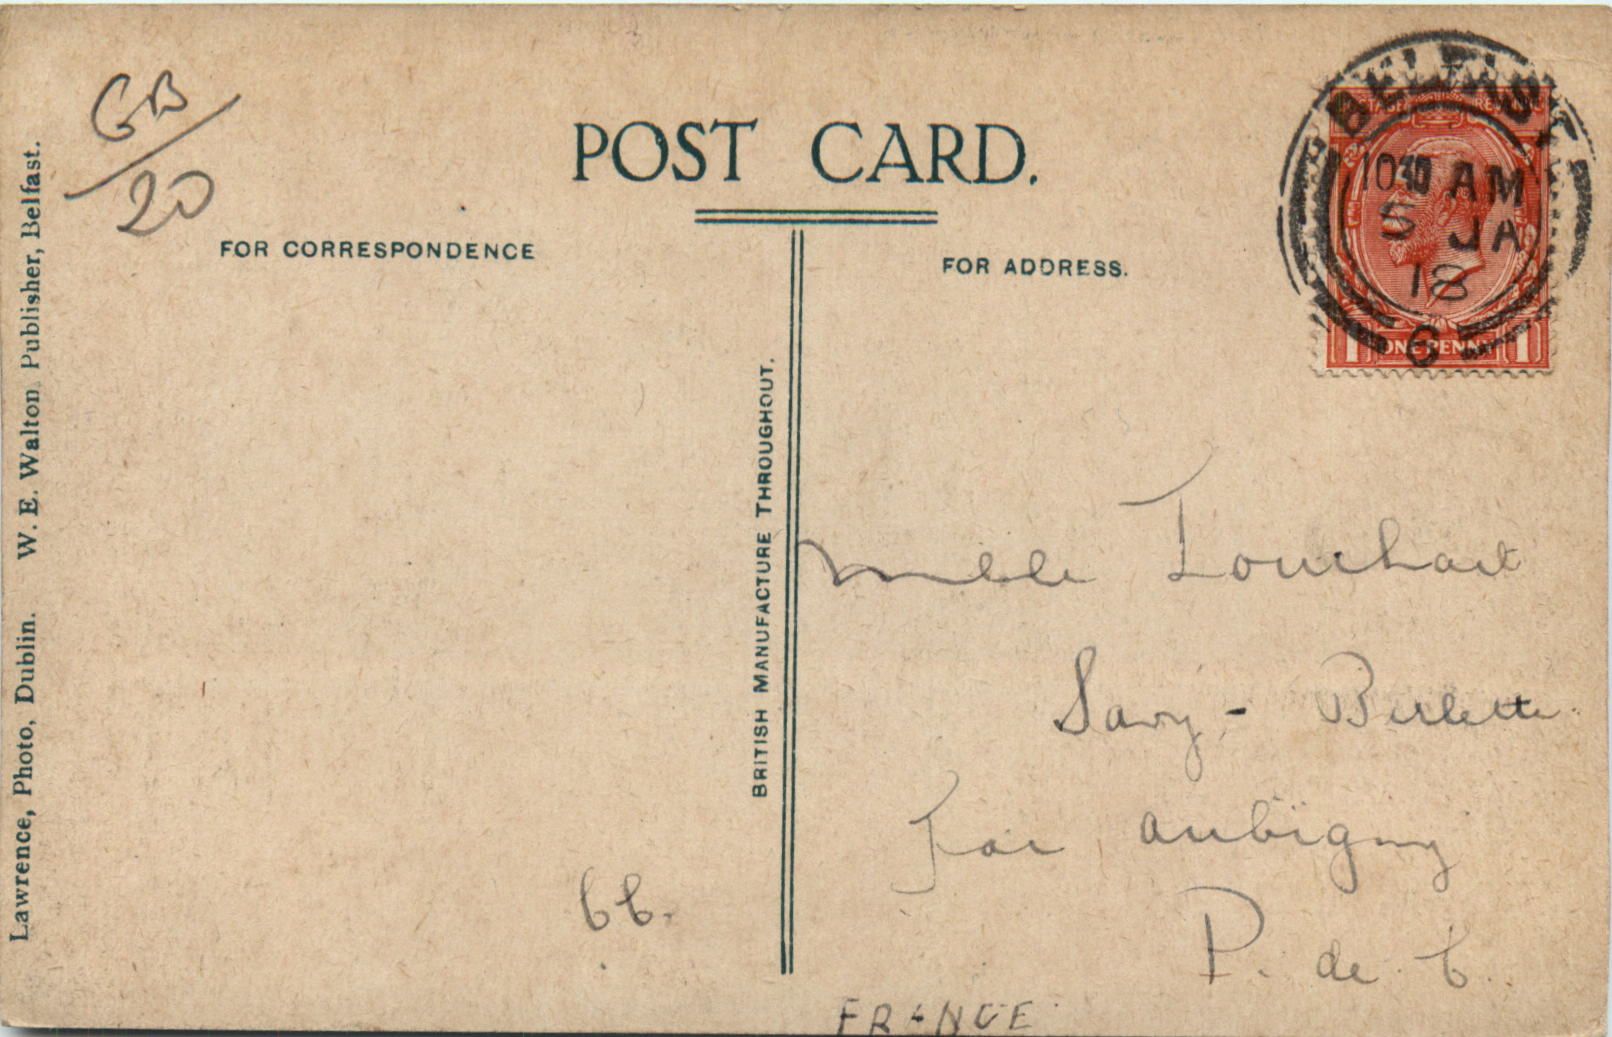 GB/20
POST CARD.
FOR CORRESPONDENCE
FOR ADDRESS.
Lawrence, Photo, Dublin. W. E. Walton Publisher, Belfast.
BRITISH MANUFACTURE THROUGHOUT.
BELFAST
10 AM
5 JA
18
6
POSTAGE REVENUE
1 ONE PENNY 1
Melle Louchart
Savy - Berlette
Par Aubigny
P. de C.
FRANCE